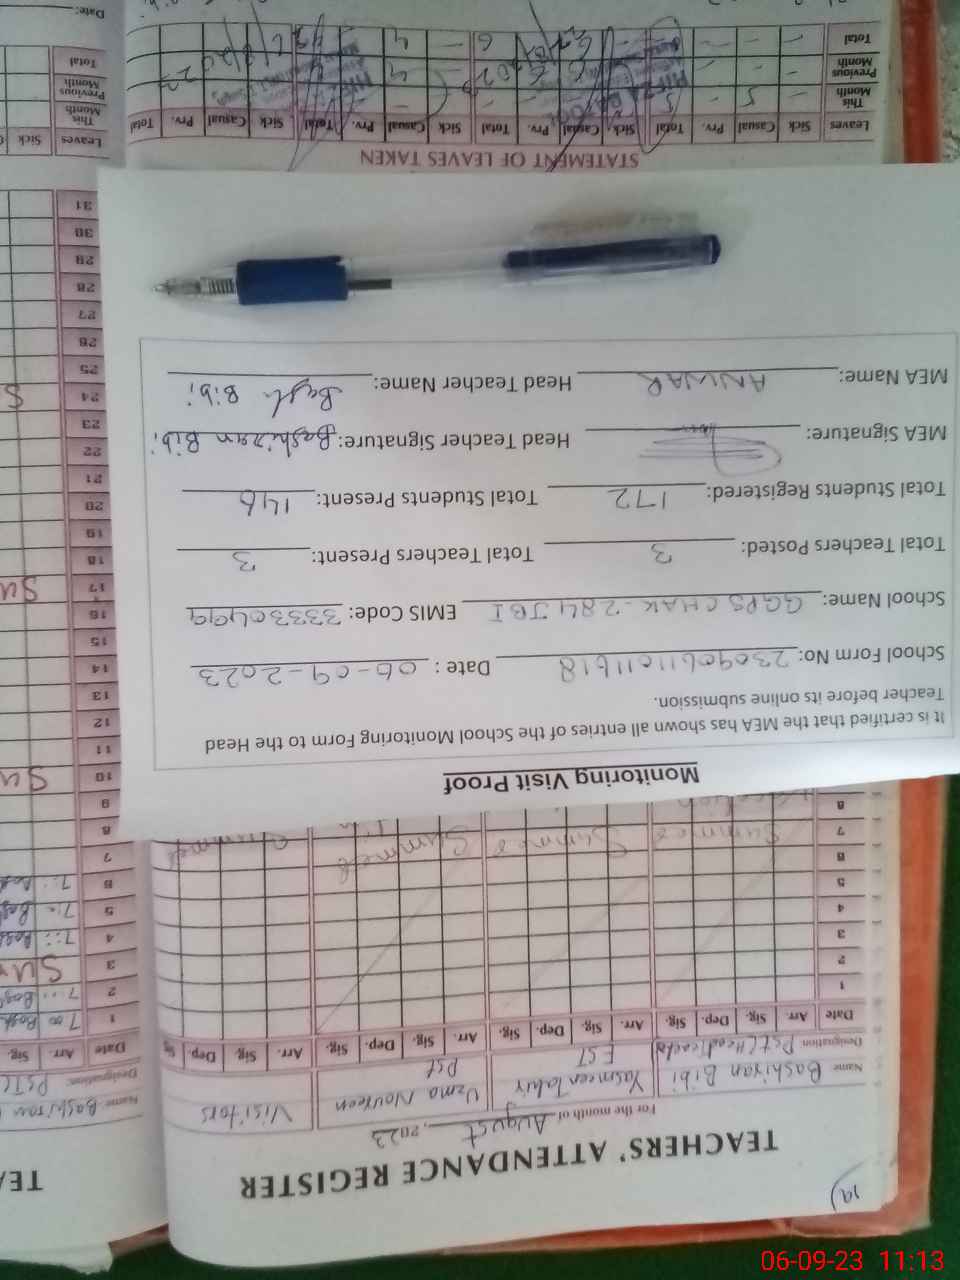 19
TEACHERS' ATTENDANCE REGISTER
For the month of August, 2023
Name Bashiran Bibi Yasmeen Tahir Uzma Noureen Visitors
Designation EST Pst
Date Arr. Sig. Dep. Sig. Arr. Sig. Dep. Sig. Arr. Sig. Dep. Sig. Arr. Sig. Dep. Sig
1
2
3
4
5
6
7 Summer Summer Summer Summer
8
Monitoring Visit Proof
It is certified that the MEA has shown all entries of the School Monitoring Form to the Head
Teacher before its online submission.
School Form No: 23090611011618 Date : 06-09-2023
School Name: GGPS CHAK-284 JB I EMIS Code: 33330499
Total Teachers Posted: 3 Total Teachers Present: 3
Total Students Registered: 172 Total Students Present: 146
MEA Signature: Head Teacher Signature: Bashiran Bibi
MEA Name: ANWAR Head Teacher Name: Bash Bibi
STATEMENT OF LEAVES TAKEN
Leaves Sick Casual Prv. Total Sick Casual Prv. Total Sick Casual Prv. Total Sick Casual Prv. Total
This Month - 5 - 5
Previous Month - - -
Total - - -
TEA
Name Bashiran
Designation: PSTC
Date Arr Sig.
1 7 00 Bash
2 7
3 Sur
4 7
5 7
6 7
7
8
9
10 Su
11
12
13
14
15
16
17 Su
18
19
20
21
22
23
24 S
25
26
27
28
29
30
31
Leaves Sick
This Month
Previous Month
Total
Date:
06-09-23 11:13